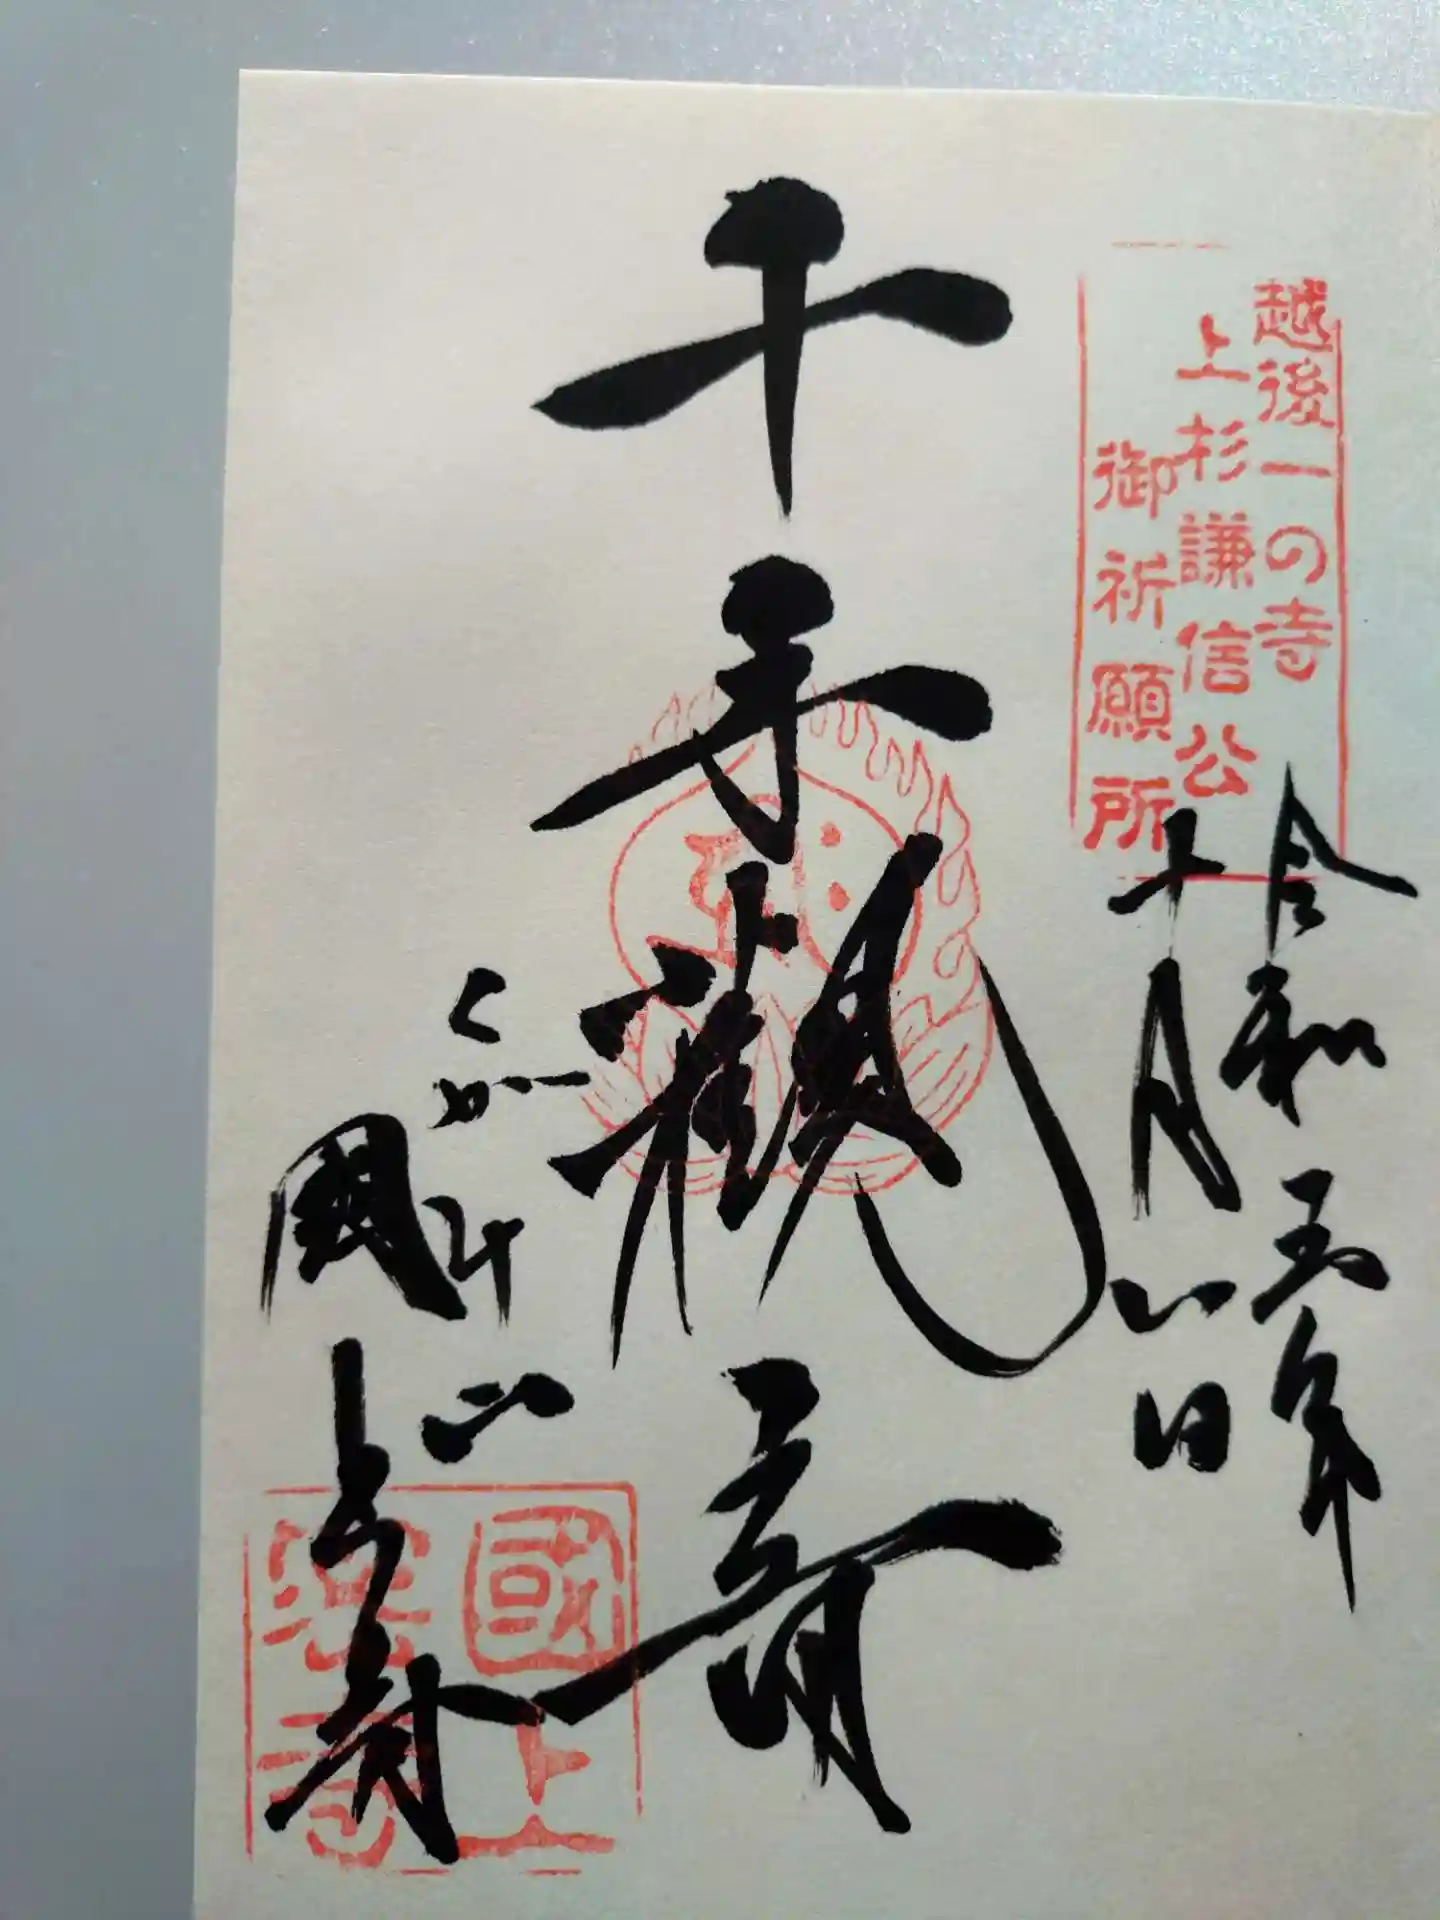 越後一の寺
上杉謙信公
御祈願所
令和五年
十月八日
千手観音
くがみ山
國上寺
國上
寺